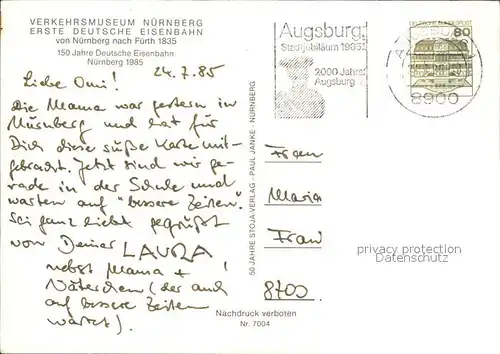 VERKEHRSMUSEUM NÜRNBERG
ERSTE DEUTSCHE EISENBAHN
von Nürnberg nach Fürth 1835
150 Jahre Deutsche Eisenbahn
Nürnberg 1985
24.7.85
Liebe Omi!
Die Mama war gestern in
Nürnberg und hat für
Dich diese süße Karte mit-
gebracht. Jetzt sind wir ge-
rade in der Schule und
warten auf "bessere Zeiten".
Sei ganz liebst gegrüßt
von Deiner LAURA
nebst Mama +
Väterchen (der auch
auf bessere Zeiten
wartet)!
50 JAHRE STOJA-VERLAG - PAUL JANKE - NÜRNBERG
Augsburg
Stadtjubiläum 1985
2000 Jahre
Augsburg
DEUTSCHE BUNDESPOST
80
8900
Frau
Maria
8700
privacy protection
Datenschutz
Nachdruck verboten
Nr. 7004